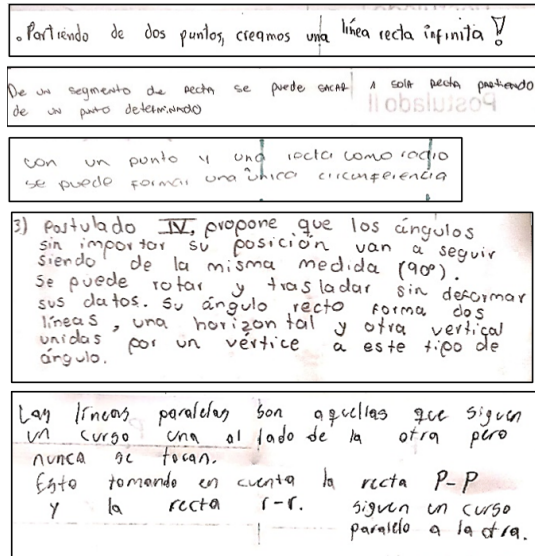 . Partiendo de dos puntos, creamos una línea recta infinita
De un segmento de recta se puede sacar 1 sola recta partiendo
de un punto determinado
Postulado II
con un punto y una recta como radio
se puede formar una única circunferencia
3) Postulado IV, propone que los ángulos
sin importar su posición van a seguir
siendo de la misma medida (90°).
Se puede rotar y trasladar sin deformar
sus datos. Su ángulo recto forma dos
líneas, una horizontal y otra vertical
unidas por un vértice a este tipo de
ángulo.
Las líneas paralelas son aquellas que siguen
un curso una al lado de la otra pero
nunca se tocan.
Esto tomando en cuenta la recta P-P
y la recta r-r. siguen un curso
paralelo a la otra.